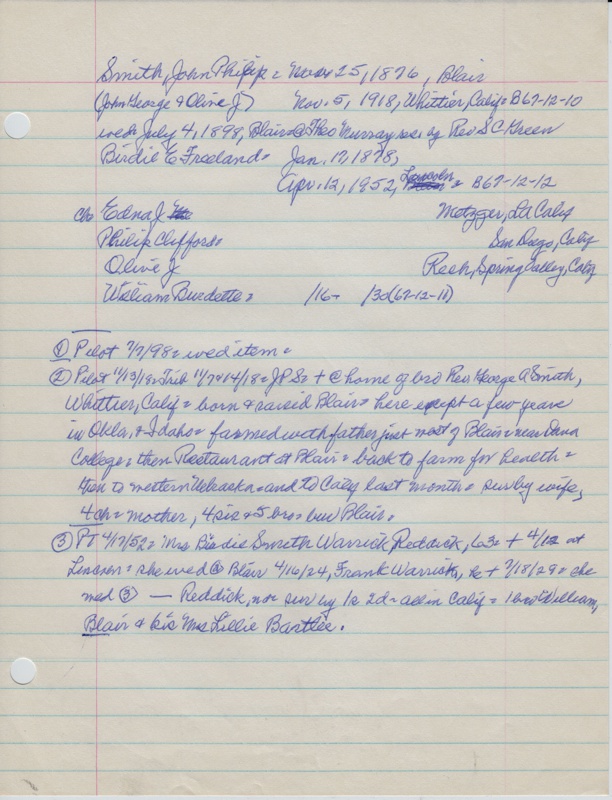 Smith, John Philip = Nov 25, 1876, Blair
(John George & Olive J) Nov. 5, 1918, Whittier, Calif = B67-12-10
wed = July 4, 1898, Blair @ Theo Murray res by Rev S C Green
Birdie E Freeland = Jan. 17, 1878,
Apr. 12, 1952, Lincoln = B67-12-12
c/o Edna J Metzger, La Calif
Philip Clifford = San Diego, Calif
Olive J Rech, Spring Valley, Calif
William Burdette = /16 + /30 (67-12-11)
① Pilot 7/7/98 = wed item =
② Pilot 11/13/18 = Trib 11/7 & 14/18 = JPS = + @ home of bro Rev George A Smith,
Whittier, Calif = born & raised Blair = here except a few years
in Okla, & Idaho = farmed with father just west of Blair = near Dana
College = then Restaurant at Blair = back to farm for health =
then to western Nebraska = and to Calif last month = sur by wife,
4 ch = mother, 4 sis & 5 bro = bur Blair =
③ PT 4/17/52 = Mrs Birdie Smith Warrick Reddick, = + 4/12 at
Lincoln = she wed @ Blair 4/16/24, Frank Warrick, he + 7/18/29 = she
med ③ — Reddick, nor sur by 1s 2d = all in Calif = 1 bro William,
Blair & sis Mrs Lillie Bartlee.